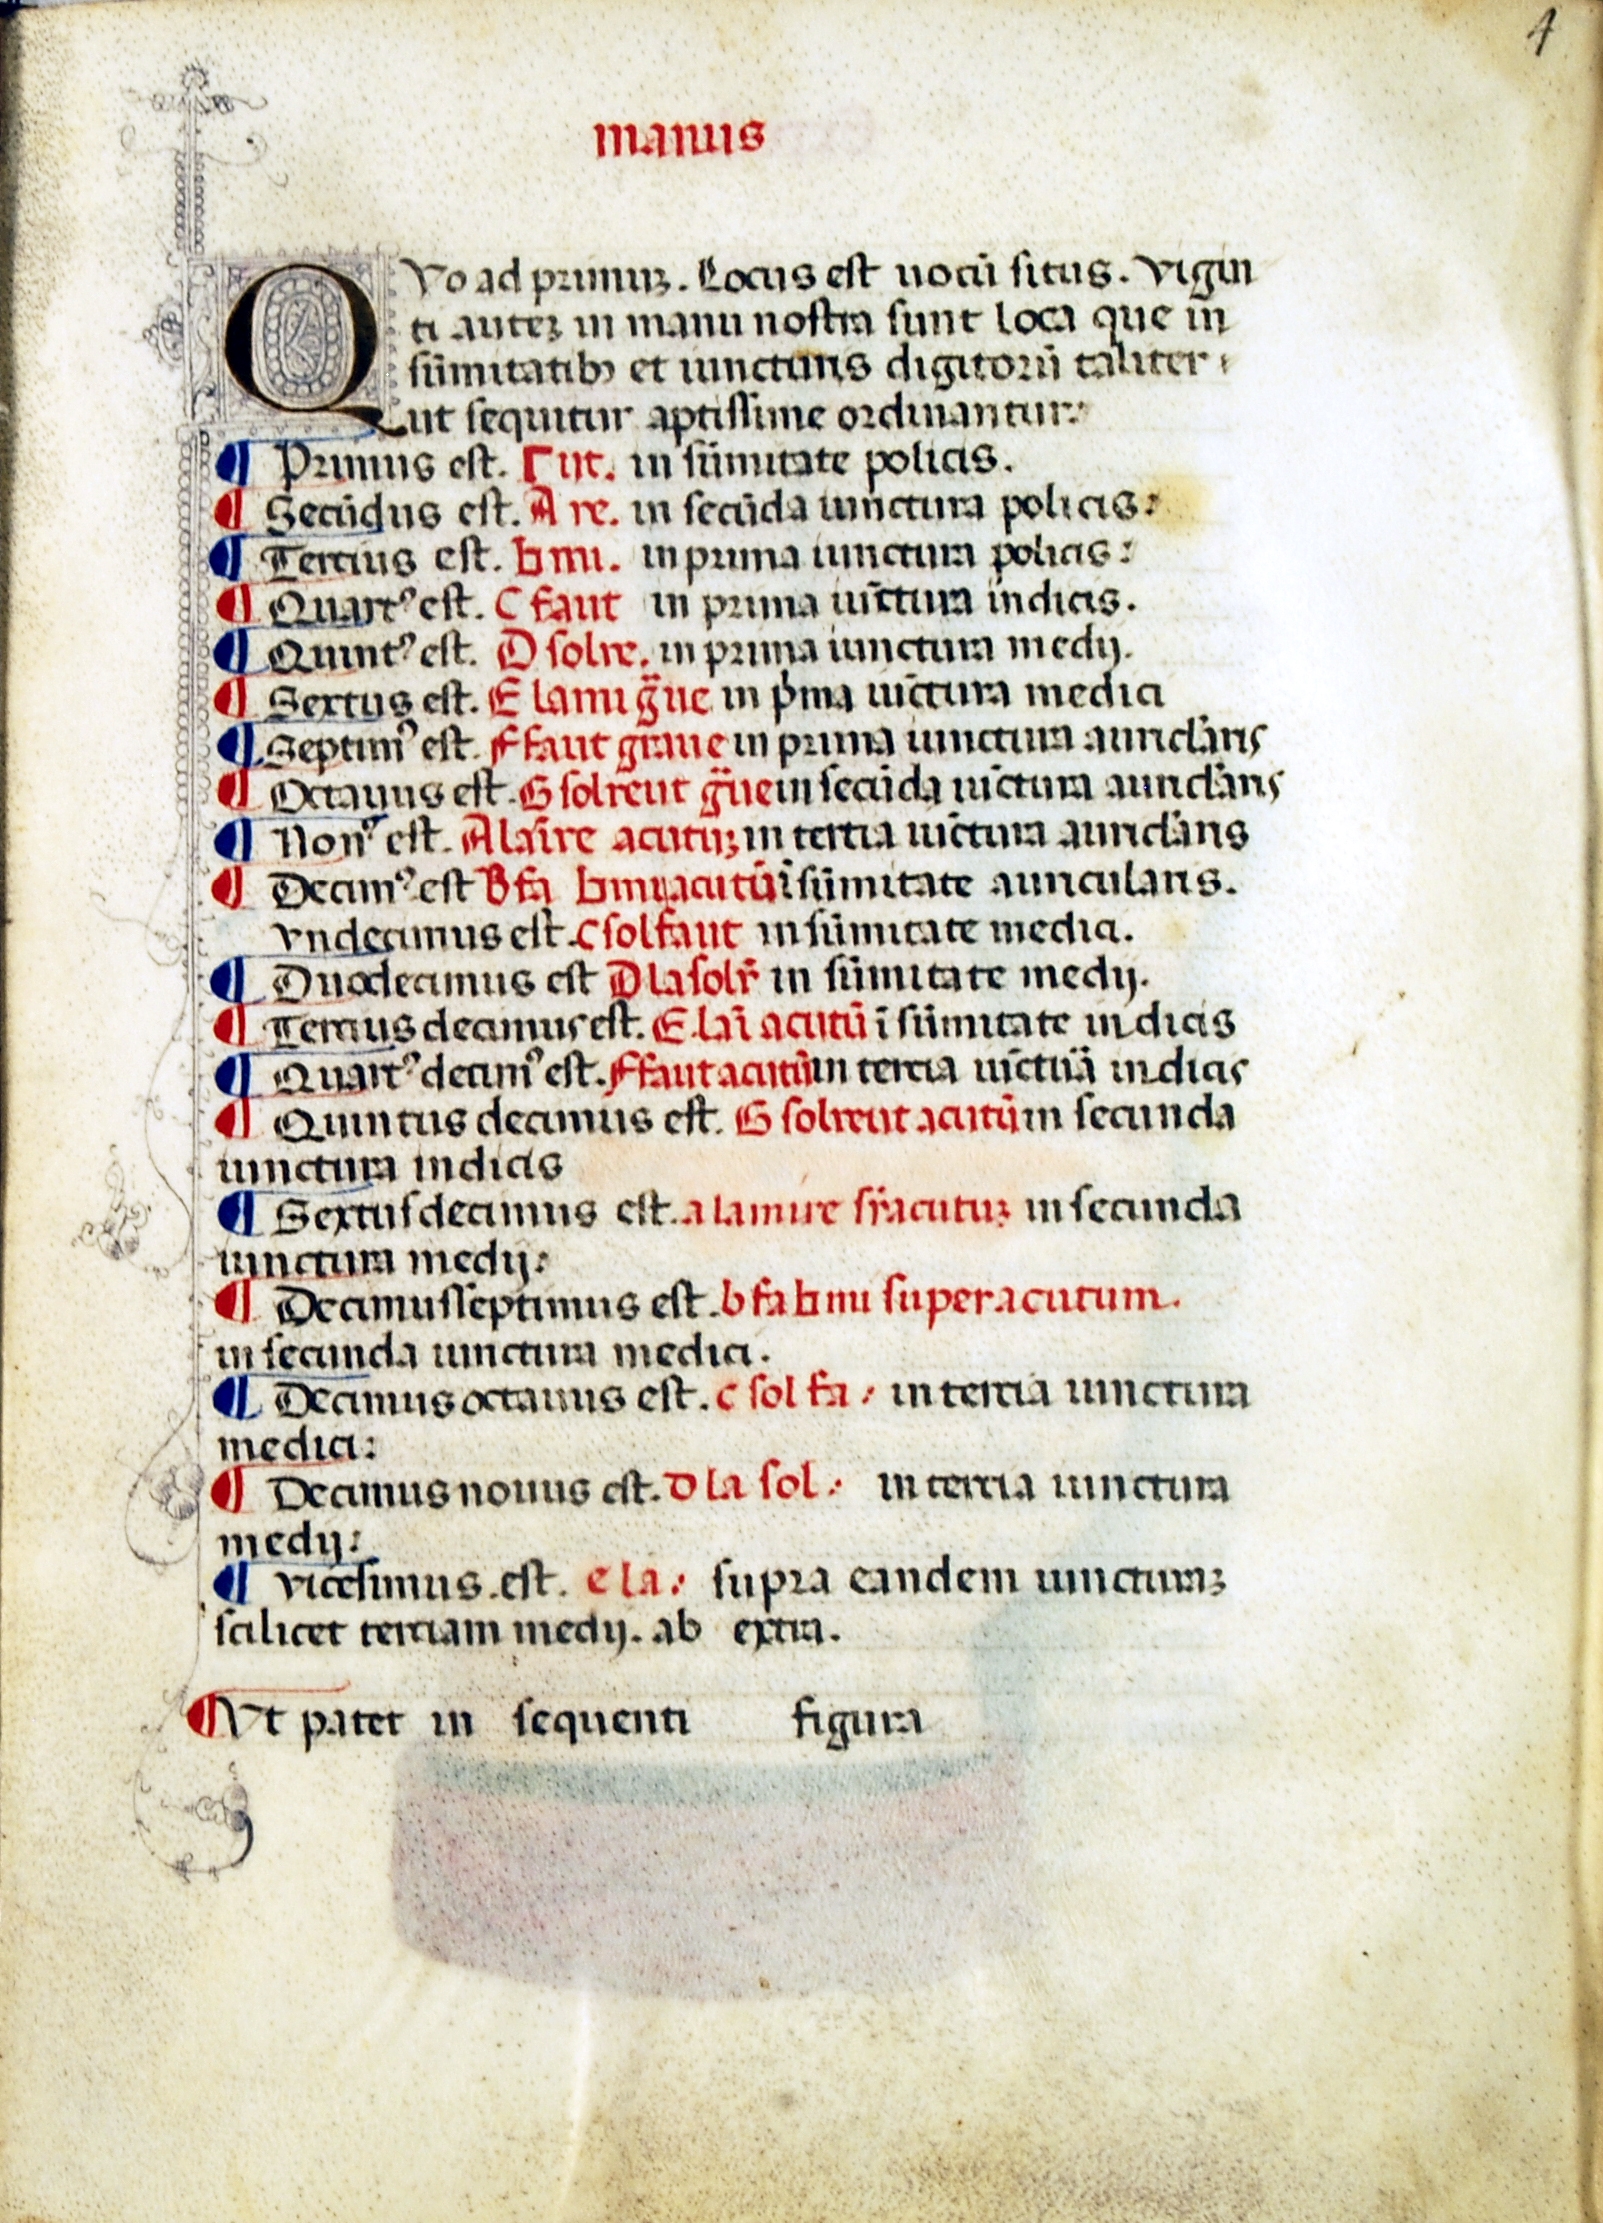 4
manus
QVo ad primuʒ. Locus est uocū situs. Vigin
ti auteʒ in manu nostra sunt loca que in
sūmitatibꝫ et iuncturis digitorū taliter
ut sequitur aptissime ordinantur:
¶ Primus est. Γ ut. in sūmitate policis.
¶ Secūdus est. A re. in secūda iunctura policis:
¶ Tertius est. ♮ mi. in prima iunctura policis:
¶ Quartꝰ est. C faut in prima iūctura indicis.
¶ Quintꝰ est. D solre. in prima iunctura medij.
¶ Sextus est. E lami g̃ue in p̓ma iūctura medici
¶ Septimꝰ est. F faut graue in prima iunctura auricl̓aris
¶ Octauus est. G solreut g̃ue in secūda iūctura auricl̓aris
¶ Nonꝰ est. A lam̄re acutuʒ in tertia iūctura auricl̓aris
¶ Decimꝰ est B fa ♮ mi acutū ī sūmitate auricularis.
Vndecimus est. C solfaut in sūmitate medici.
¶ Duodecimus est D lasolr̄ in sūmitate medij.
¶ Tertius decimus est. E lam̄ī acutū ī sūmitate indicis
¶ Quartꝰ decimꝰ est. F faut acutū in tertia iūctu͞a indicis
¶ Quintus decimus est. G solreut acutū in secunda
iunctura indicis
¶ Sextus decimus est. a lamire sr̄acutuʒ in secunda
iunctura medij:
¶ Decimusseptimus est. b fa ♮ mi superacutum.
in secunda iunctura medici.
¶ Decimus octauus est. c sol fa: in tertia iunctura
medici:
¶ Decimus nonus est. d la sol: in tertia iunctura
medij:
¶ Vicesimus. est. e la: supra eandem iuncturaʒ
scilicet tertiam medij. ab extra.
¶ Vt patet in sequenti figura